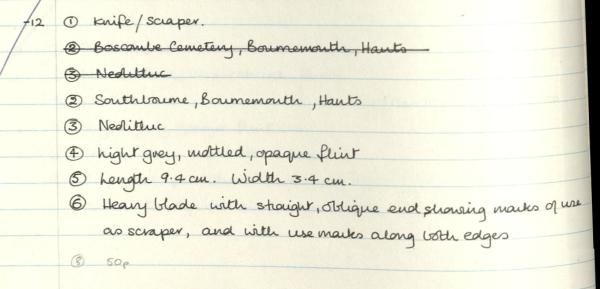 -12 ① Knife/scraper.
② Boscombe Cemetery, Bournemouth, Hants
③ Neolithic
② Southbourne, Bournemouth, Hants
③ Neolithic
④ Light grey, mottled, opaque flint
⑤ Length 9.4 cm. Width 3.4 cm.
⑥ Heavy blade with straight, oblique end showing marks of use
as scraper, and with use marks along both edges
⑧ 50p